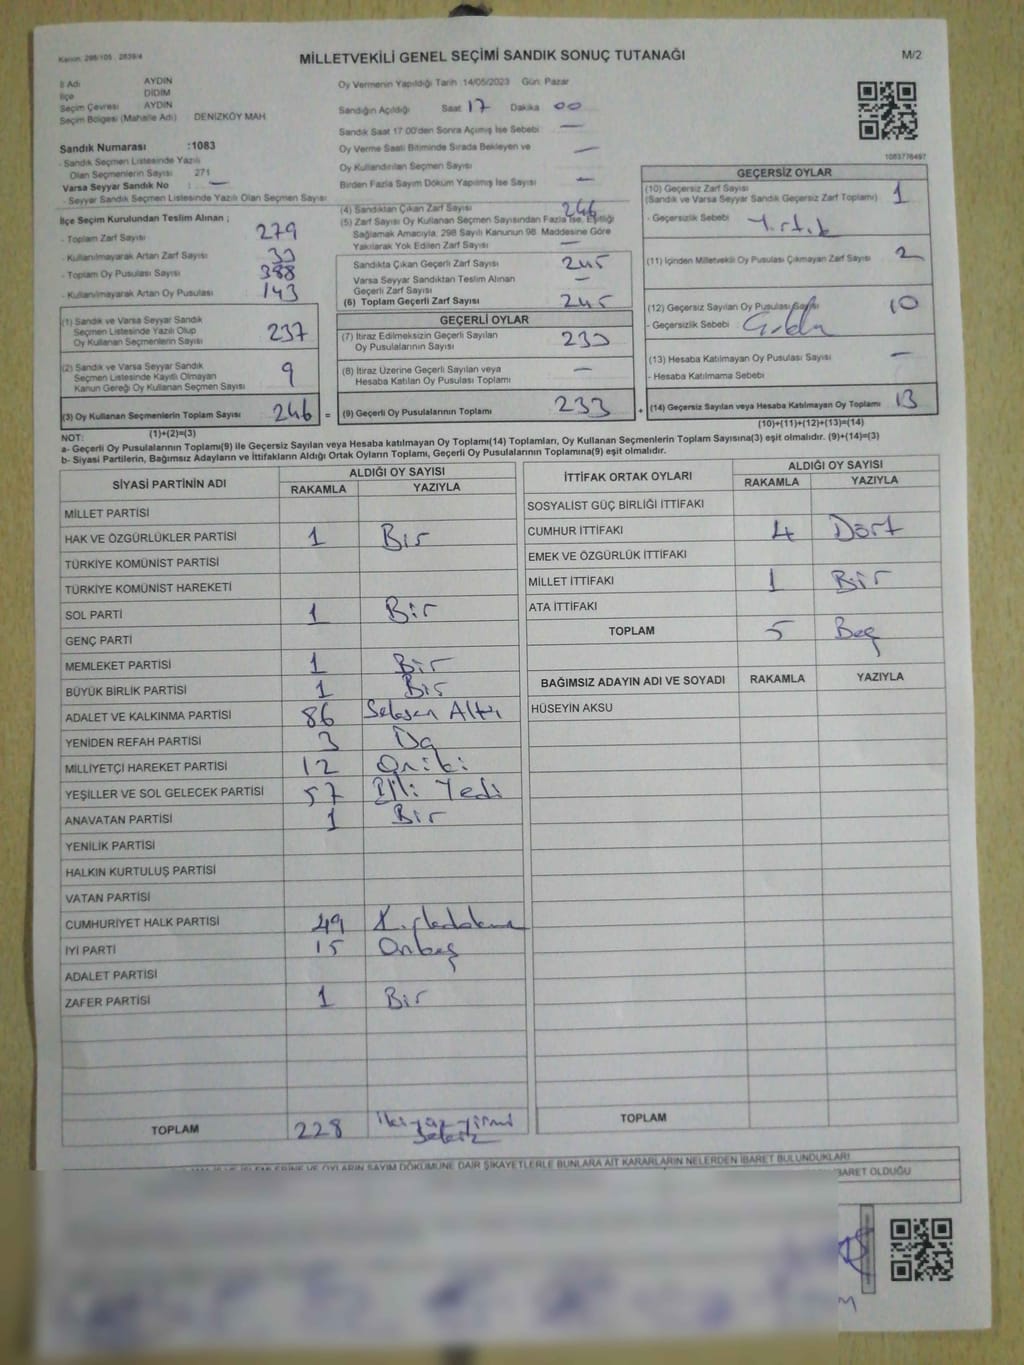 Kanun: 298/105 . 2839/4
MİLLETVEKİLİ GENEL SEÇİMİ SANDIK SONUÇ TUTANAĞI
M/2
İl Adı AYDIN
İlçe DİDİM
Seçim Çevresi AYDIN
Seçim Bölgesi (Mahalle Adı) DENİZKÖY MAH.
Sandık Numarası :1083
- Sandık Seçmen Listesinde Yazılı
Olan Seçmenlerin Sayısı 271
Varsa Seyyar Sandık No : —
- Seyyar Sandık Seçmen Listesinde Yazılı Olan Seçmen Sayısı
Oy Vermenin Yapıldığı Tarih :14/05/2023 Gün: Pazar
Sandığın Açıldığı Saat 17 Dakika 00
Sandık Saat 17:00'den Sonra Açılmış İse Sebebi —
Oy Verme Saati Bitiminde Sırada Bekleyen ve
Oy Kullandırılan Seçmen Sayısı —
Birden Fazla Sayım Döküm Yapılmış İse Sayısı —
1083776497
İlçe Seçim Kurulundan Teslim Alınan ;
- Toplam Zarf Sayısı 279
- Kullanılmayarak Artan Zarf Sayısı 33
- Toplam Oy Pusulası Sayısı 388
- Kullanılmayarak Artan Oy Pusulası 143
(1) Sandık ve Varsa Seyyar Sandık
Seçmen Listesinde Yazılı Olup
Oy Kullanan Seçmenlerin Sayısı 237
(2) Sandık ve Varsa Seyyar Sandık
Seçmen Listesinde Kayıtlı Olmayan
Kanun Gereği Oy Kullanan Seçmen Sayısı 9
(3) Oy Kullanan Seçmenlerin Toplam Sayısı 246 =
(1)+(2)=(3)
(4) Sandıktan Çıkan Zarf Sayısı 246
(5) Zarf Sayısı Oy Kullanan Seçmen Sayısından Fazla İse, Eşitliği
Sağlamak Amacıyla, 298 Sayılı Kanunun 98. Maddesine Göre
Yakılarak Yok Edilen Zarf Sayısı —
Sandıkta Çıkan Geçerli Zarf Sayısı 245
Varsa Seyyar Sandıktan Teslim Alınan
Geçerli Zarf Sayısı —
(6) Toplam Geçerli Zarf Sayısı 245
GEÇERLİ OYLAR
(7) İtiraz Edilmeksizin Geçerli Sayılan
Oy Pusulalarının Sayısı 233
(8) İtiraz Üzerine Geçerli Sayılan veya
Hesaba Katılan Oy Pusulası Toplamı —
(9) Geçerli Oy Pusulalarının Toplamı 233 +
GEÇERSİZ OYLAR
(10) Geçersiz Zarf Sayısı
(Sandık ve Varsa Seyyar Sandık Geçersiz Zarf Toplamı) 1
- Geçersizlik Sebebi Yırtık
(11) İçinden Milletvekili Oy Pusulası Çıkmayan Zarf Sayısı 2
(12) Geçersiz Sayılan Oy Pusulası Sayısı 10
- Geçersizlik Sebebi
(13) Hesaba Katılmayan Oy Pusulası Sayısı —
- Hesaba Katılmama Sebebi
(14) Geçersiz Sayılan veya Hesaba Katılmayan Oy Toplamı 13
(10)+(11)+(12)+(13)=(14)
NOT:
a- Geçerli Oy Pusulalarının Toplamı(9) ile Geçersiz Sayılan veya Hesaba katılmayan Oy Toplamı(14) Toplamları, Oy Kullanan Seçmenlerin Toplam Sayısına(3) eşit olmalıdır. (9)+(14)=(3)
b- Siyasi Partilerin, Bağımsız Adayların ve İttifakların Aldığı Ortak Oyların Toplamı, Geçerli Oy Pusulalarının Toplamına(9) eşit olmalıdır.
SİYASİ PARTİNİN ADI ALDIĞI OY SAYISI
RAKAMLA YAZIYLA
MİLLET PARTİSİ
HAK VE ÖZGÜRLÜKLER PARTİSİ 1 Bir
TÜRKİYE KOMÜNİST PARTİSİ
TÜRKİYE KOMÜNİST HAREKETİ
SOL PARTİ 1 Bir
GENÇ PARTİ
MEMLEKET PARTİSİ 1 Bir
BÜYÜK BİRLİK PARTİSİ 1 Bir
ADALET VE KALKINMA PARTİSİ 86 Seksen Altı
YENİDEN REFAH PARTİSİ 3 Üç
MİLLİYETÇİ HAREKET PARTİSİ 12 Oniki
YEŞİLLER VE SOL GELECEK PARTİSİ 57 Elli Yedi
ANAVATAN PARTİSİ 1 Bir
YENİLİK PARTİSİ
HALKIN KURTULUŞ PARTİSİ
VATAN PARTİSİ
CUMHURİYET HALK PARTİSİ 49 Kırkdokuz
İYİ PARTİ 15 Onbeş
ADALET PARTİSİ
ZAFER PARTİSİ 1 Bir
TOPLAM 228 ikiyüz yirmi
Sekiz
İTTİFAK ORTAK OYLARI ALDIĞI OY SAYISI
RAKAMLA YAZIYLA
SOSYALİST GÜÇ BİRLİĞİ İTTİFAKI
CUMHUR İTTİFAKI 4 Dört
EMEK VE ÖZGÜRLÜK İTTİFAKI
MİLLET İTTİFAKI 1 Bir
ATA İTTİFAKI
TOPLAM 5 Beş
BAĞIMSIZ ADAYIN ADI VE SOYADI RAKAMLA YAZIYLA
HÜSEYİN AKSU
TOPLAM
OYLARIN SAYIM DÖKÜMÜNE DAİR ŞİKAYETLERLE BUNLARA AİT KARARLARIN NELERDEN İBARET BULUNDUKLARI
İBARET OLDUĞU